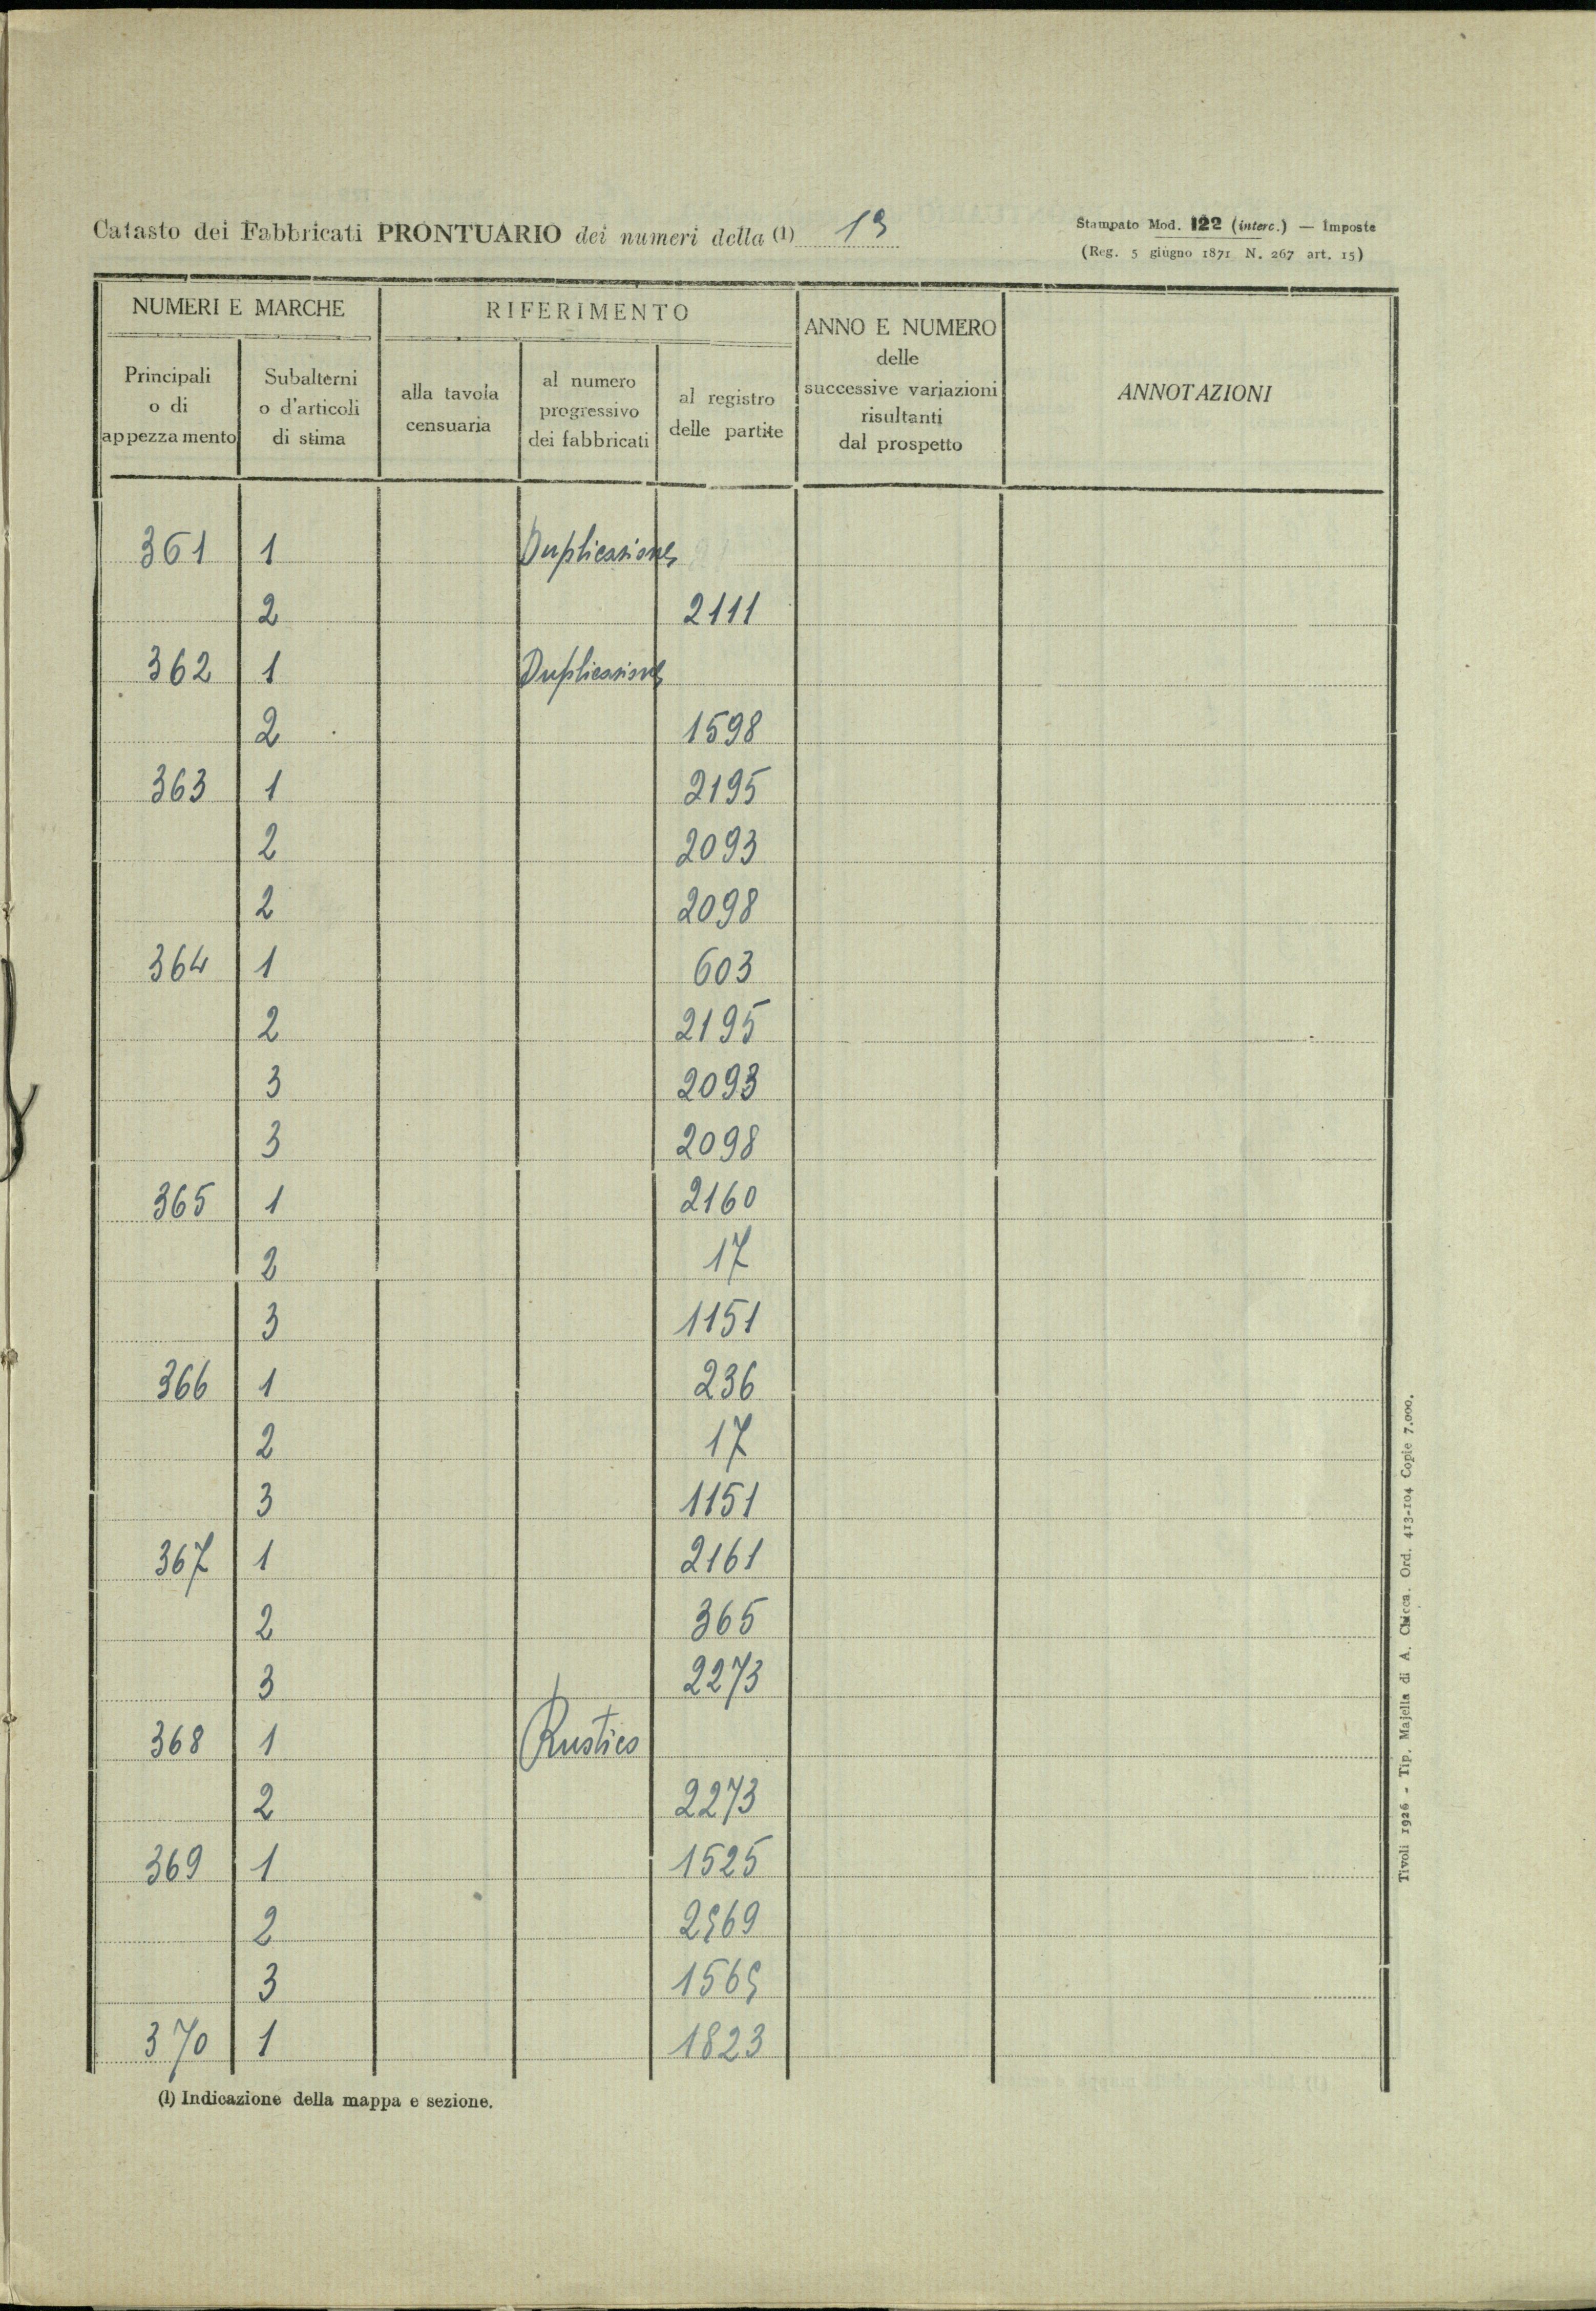 Catasto dei Fabbricati PRONTUARIO dei numeri della (1) 19
Stampato Mod. 122 (interc.) — Imposte
(Reg. 5 giugno 1871 N. 267 art. 15)
NUMERI E MARCHE
RIFERIMENTO
ANNO E NUMERO
delle
successive variazioni
risultanti
dal prospetto
ANNOTAZIONI
Principali
o di
appezzamento
Subalterni
o d'articoli
di stima
alla tavola
censuaria
al numero
progressivo
dei fabbricati
al registro
delle partite
361 1 Duplicazione
2 2111
362 1 Duplicazione
2 1598
363 1 2195
2 2093
2 2098
364 1 603
2 2195
3 2093
3 2098
365 1 2160
2 17
3 1151
366 1 236
2 17
3 1151
367 1 2161
2 365
3 2273
368 1 Rustico
2 2273
369 1 1525
2
3 1569
370 1 1823
(1) Indicazione della mappa e sezione.
Tivoli 1926 - Tip. Majella di A. Chicca. Ord. 413-104 Copie 7.000.